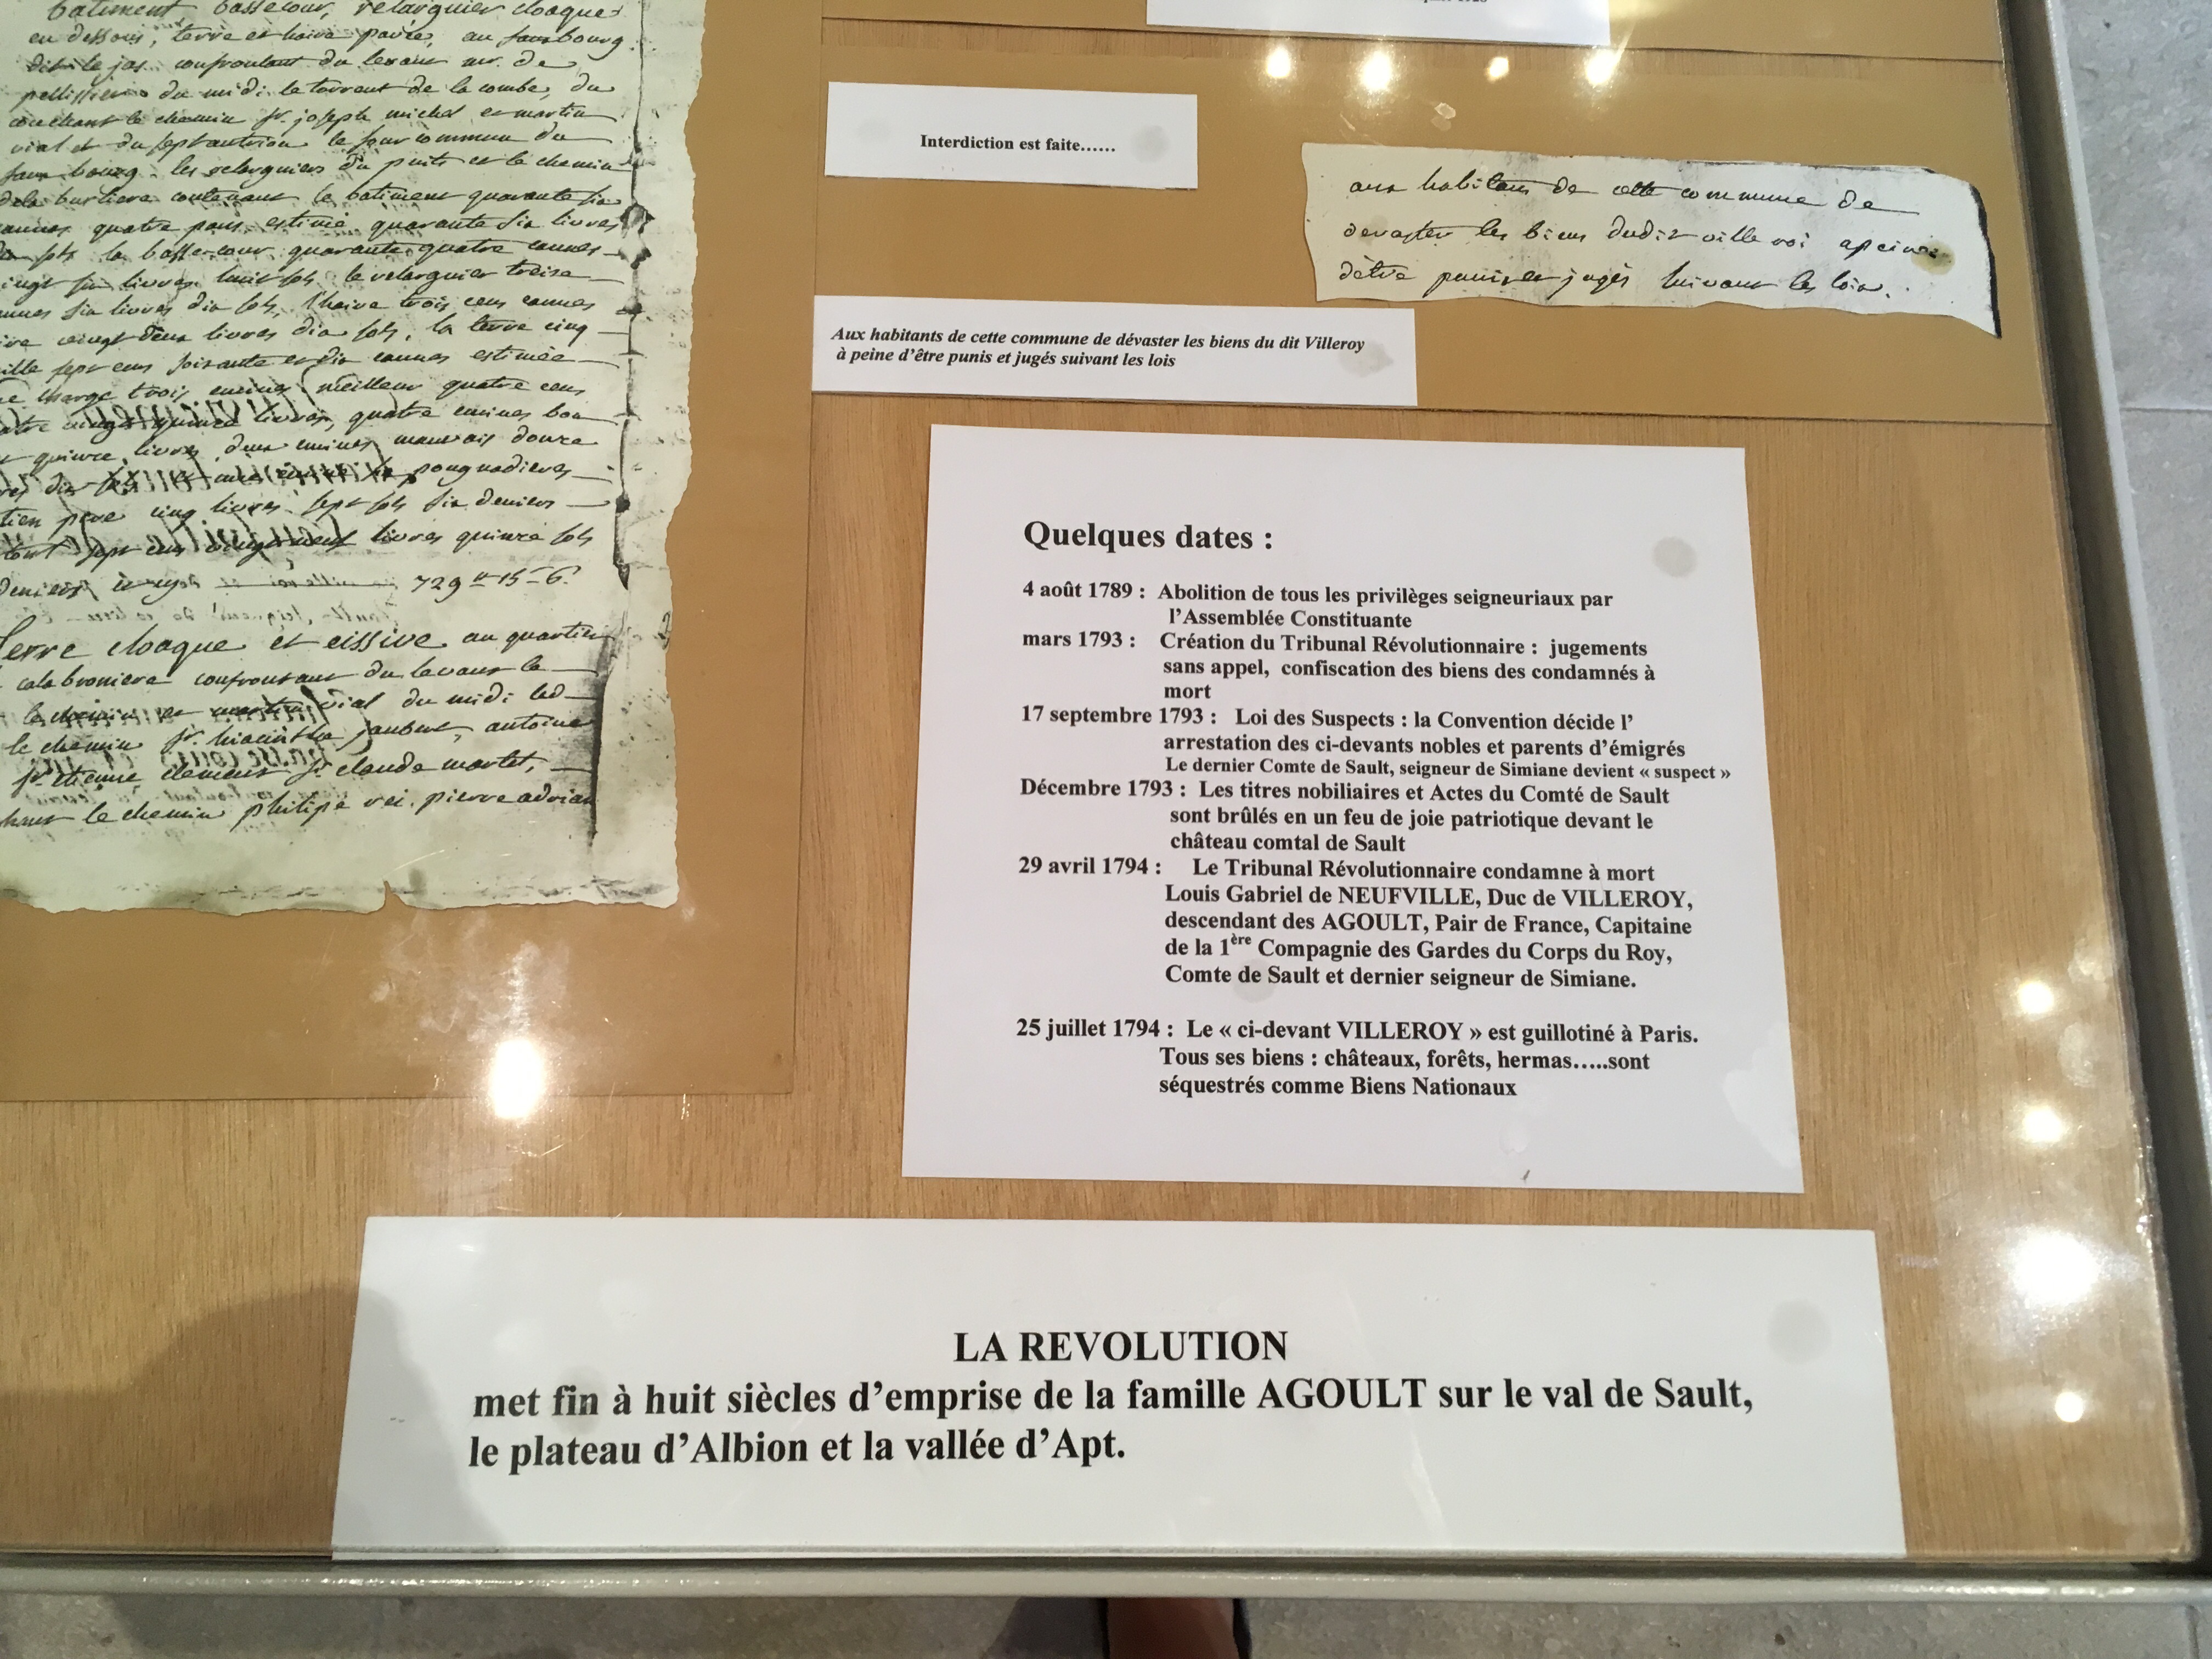 batiment bassecour, relarguier cloaque
en dessous, terre et haire parées, au fauxbourg
dit le jas confrontant du levant mr. de
pellissier du midi le torrent de la combe, du
couchant le chemin sr. joseph michel et martin
vial et du septantrion le four commun du
faux bourg les relarguiers du puits et le chemin
contenant le batiment quarante six
cannes quatre pans estimé quarante six livres
sols la basse cour quarante quatre cannes
vingt six livres huit sols le relarguier treise
cannes six livres dix sols, l'haire trois cens cannes
vingt deux livres dix sols, la terre cinq
mille sept cens soixante et dix cannes estimée
charge trois emines meilleur quatre cens
quatre vingt quinze livres, quatre emines bon
quinze livres deux emines mauvais douze
pougnadieres
cinq livres sept sols six deniers
tout sept cens vingt neuf livres quinze sols
deniers 729 # 15 - 6.
Terre cloaque et eissive au quartier
calabroniere confrontant du levant le
le chemin et martin vial du midi le d
le chemin sr. hiacinthe jaubert, antoine
sr. etienne clement sr claude martel,
le chemin philipe rei, pierre adrian
Interdiction est faite……
aux habitans de cette commune de
devaster les biens dudit ville roi a peine
d'être punis et jugés suivant les lois.
Aux habitants de cette commune de dévaster les biens du dit Villeroy
à peine d'être punis et jugés suivant les lois
Quelques dates :
4 août 1789 : Abolition de tous les privilèges seigneuriaux par
l'Assemblée Constituante
mars 1793 : Création du Tribunal Révolutionnaire : jugements
sans appel, confiscation des biens des condamnés à
mort
17 septembre 1793 : Loi des Suspects : la Convention décide l'
arrestation des ci-devants nobles et parents d'émigrés
Le dernier Comte de Sault, seigneur de Simiane devient « suspect »
Décembre 1793 : Les titres nobiliaires et Actes du Comté de Sault
sont brûlés en un feu de joie patriotique devant le
château comtal de Sault
29 avril 1794 : Le Tribunal Révolutionnaire condamne à mort
Louis Gabriel de NEUFVILLE, Duc de VILLEROY,
descendant des AGOULT, Pair de France, Capitaine
de la 1ère Compagnie des Gardes du Corps du Roy,
Comte de Sault et dernier seigneur de Simiane.
25 juillet 1794 : Le « ci-devant VILLEROY » est guillotiné à Paris.
Tous ses biens : châteaux, forêts, hermas…..sont
séquestrés comme Biens Nationaux
LA REVOLUTION
met fin à huit siècles d'emprise de la famille AGOULT sur le val de Sault,
le plateau d'Albion et la vallée d'Apt.